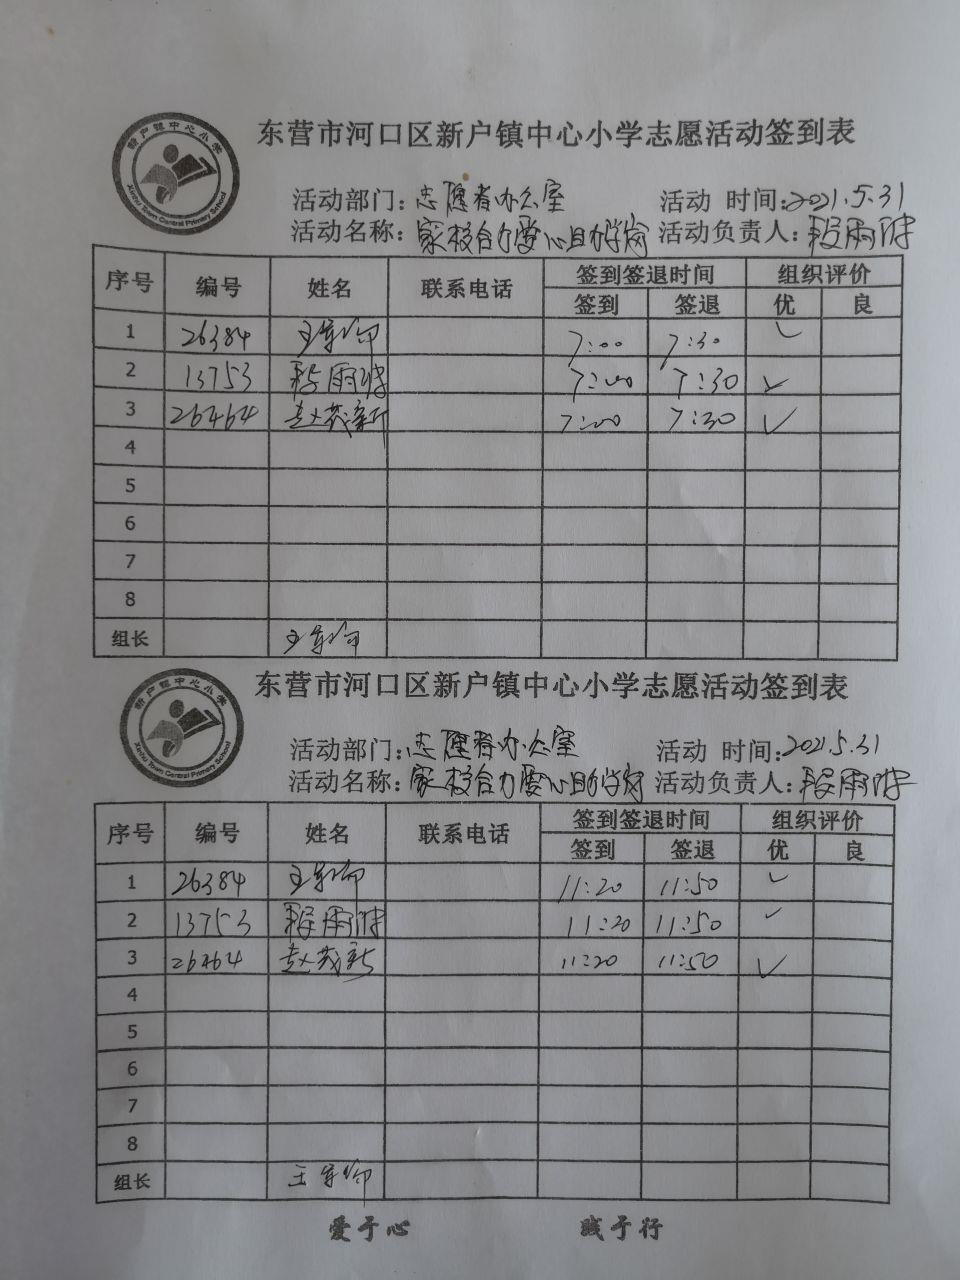 新户镇中心小学
Xinhu Town Central Primary School
东营市河口区新户镇中心小学志愿活动签到表
活动部门：志愿者办公室 活动 时间：2021.5.31
活动名称：家校合力爱心助学岗 活动负责人：雨
序号 编号 姓名 联系电话 签到签退时间 组织评价
签到 签退 优 良
1 26384 王 7:00 7:30 ✓
2 13753 雨 7:00 7:30 ✓
3 26464 赵茂新 7:00 7:30 ✓
4
5
6
7
8
组长 王
新户镇中心小学
Xinhu Town Central Primary School
东营市河口区新户镇中心小学志愿活动签到表
活动部门：志愿者办公室 活动 时间：2021.5.31
活动名称：家校合力爱心助学岗 活动负责人：雨
序号 编号 姓名 联系电话 签到签退时间 组织评价
签到 签退 优 良
1 26384 王 11:20 11:50 ✓
2 13753 雨 11:20 11:50 ✓
3 26464 赵茂新 11:20 11:50 ✓
4
5
6
7
8
组长 王
爱于心 践于行